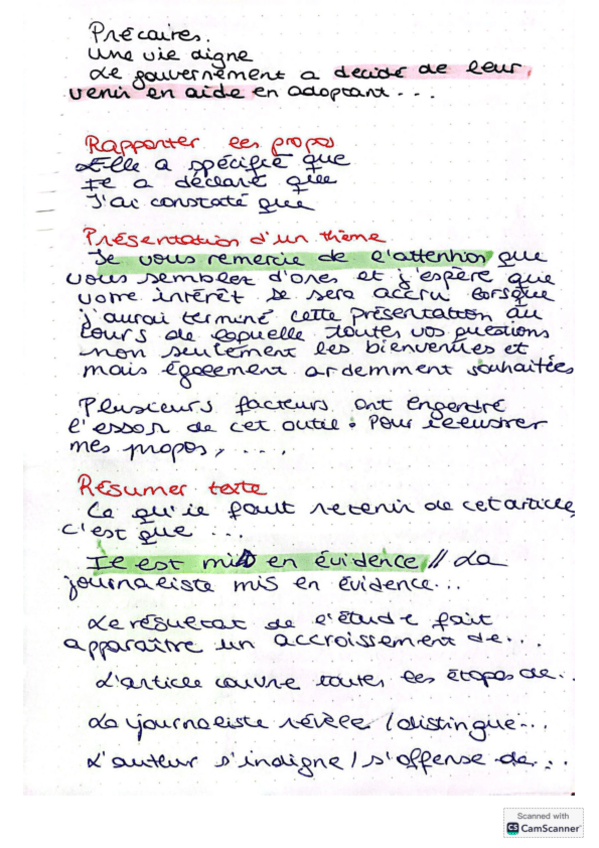 Précaires.
une vie digne
Le gouvernement a décidé de leur
venir en aide en adoptant...
Rapporter les propos
Elle a spécifié que
Il a déclaré que
J'ai constaté que
Présentation d'un thème
Je vous remercie de l'attention que
vous semblez d'ores et j'espère que
votre intérêt se sera accru lorsque
j'aurai terminé cette présentation au
cours de laquelle toutes vos questions
non seulement les bienvenues et
mais également ardemment souhaitées
Plusieurs facteurs ont engendré
l'essor de cet outil. Pour illustrer
mes propos, ....,
Résumer texte
Ce qu'il faut retenir de cet article,
c'est que ...
Il est mis en évidence // La
journaliste mis en évidence...
Le résultat de l'étude fait
apparaître un accroissement de...
L'article couvre toutes les étapes de...
La journaliste révèle / distingue...
L'auteur s'indigne / s'offense de...
Scanned with
CS CamScanner